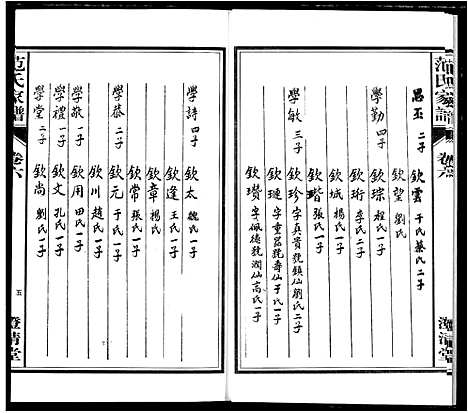 范氏家譜
卷六
澄清堂
昌丕 二子
欽雲 于氏蔡氏二子
欽望 劉氏
學勤 四子
欽琮 程氏一子
欽珩 李氏二子
欽城 楊氏一子
欽瑎 張氏一子
學敏 三子
欽珍 字真貴號鎮仙劉氏二子
欽璉 字重器號壽仙于氏一子
欽瓚 字佩德號潤仙高氏一子
學詩 四子
欽太 魏氏一子
欽逢 王氏一子
欽章 楊氏
欽常 張氏一子
學恭 二子
欽元 于氏一子
欽川 趙氏一子
學敬 一子
欽用 田氏一子
學禮 一子
欽文 孔氏一子
學堂 二子
欽尚 劉氏一子
范氏家譜
卷六
五
澄清堂